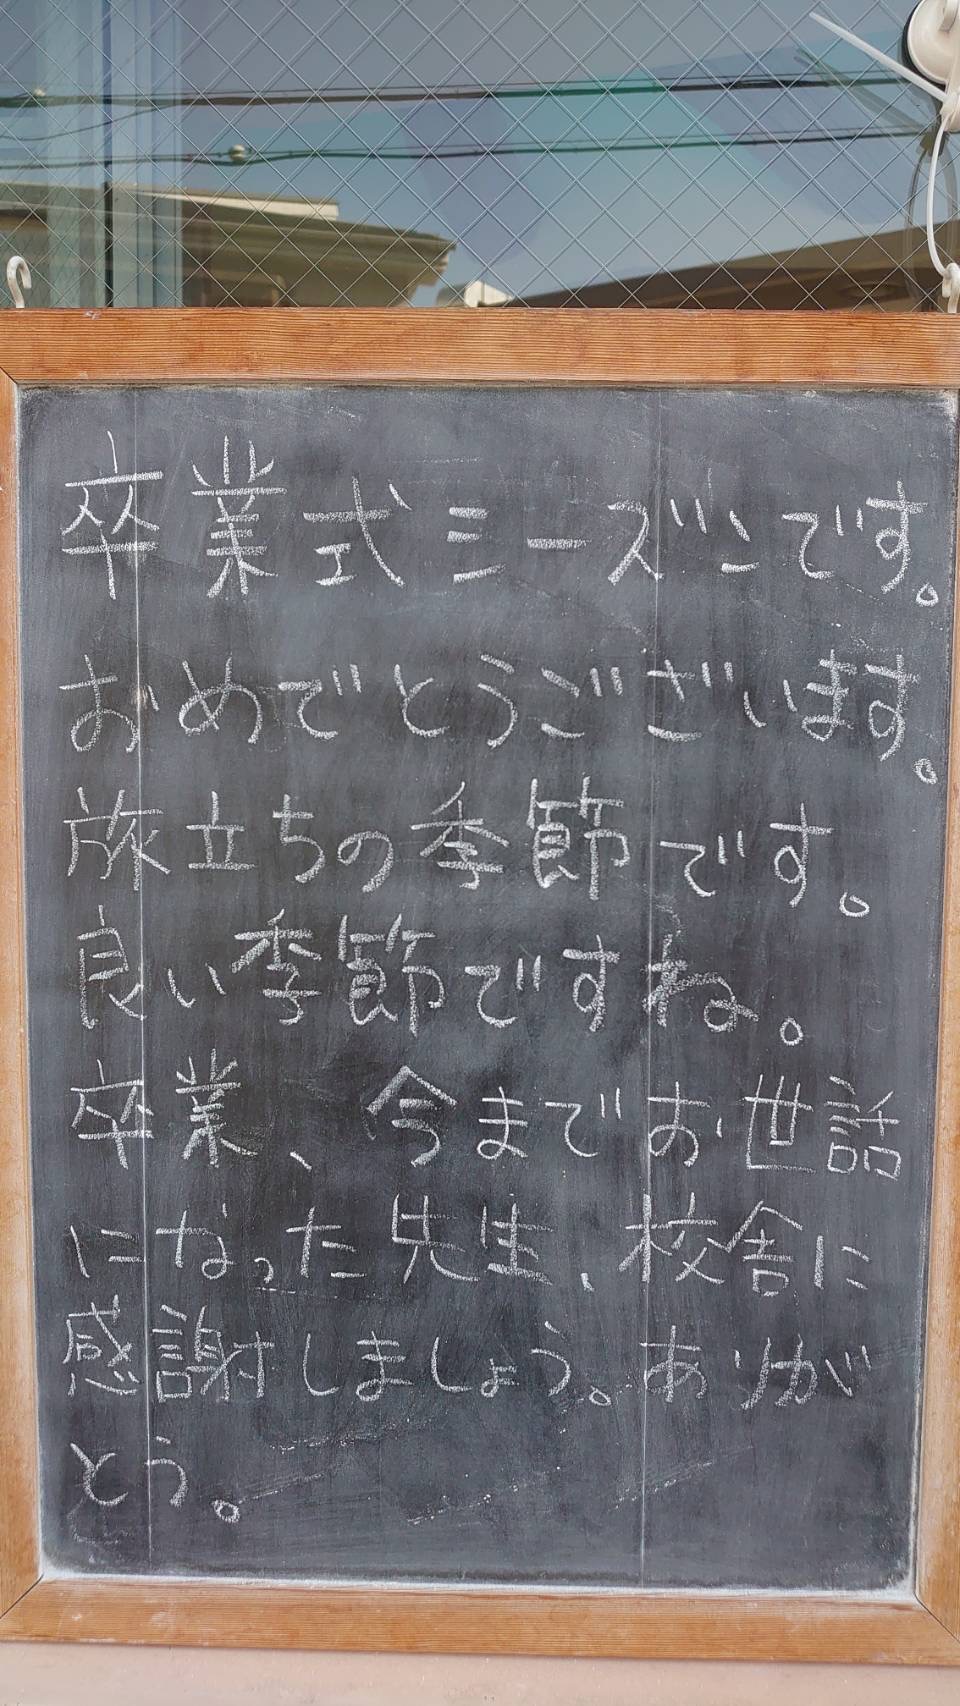 卒業式シーズンです。
おめでとうございます。
旅立ちの季節です。
良い季節ですね。
卒業、今までお世話
になった先生、校舎に
感謝しましょう。ありが
とう。